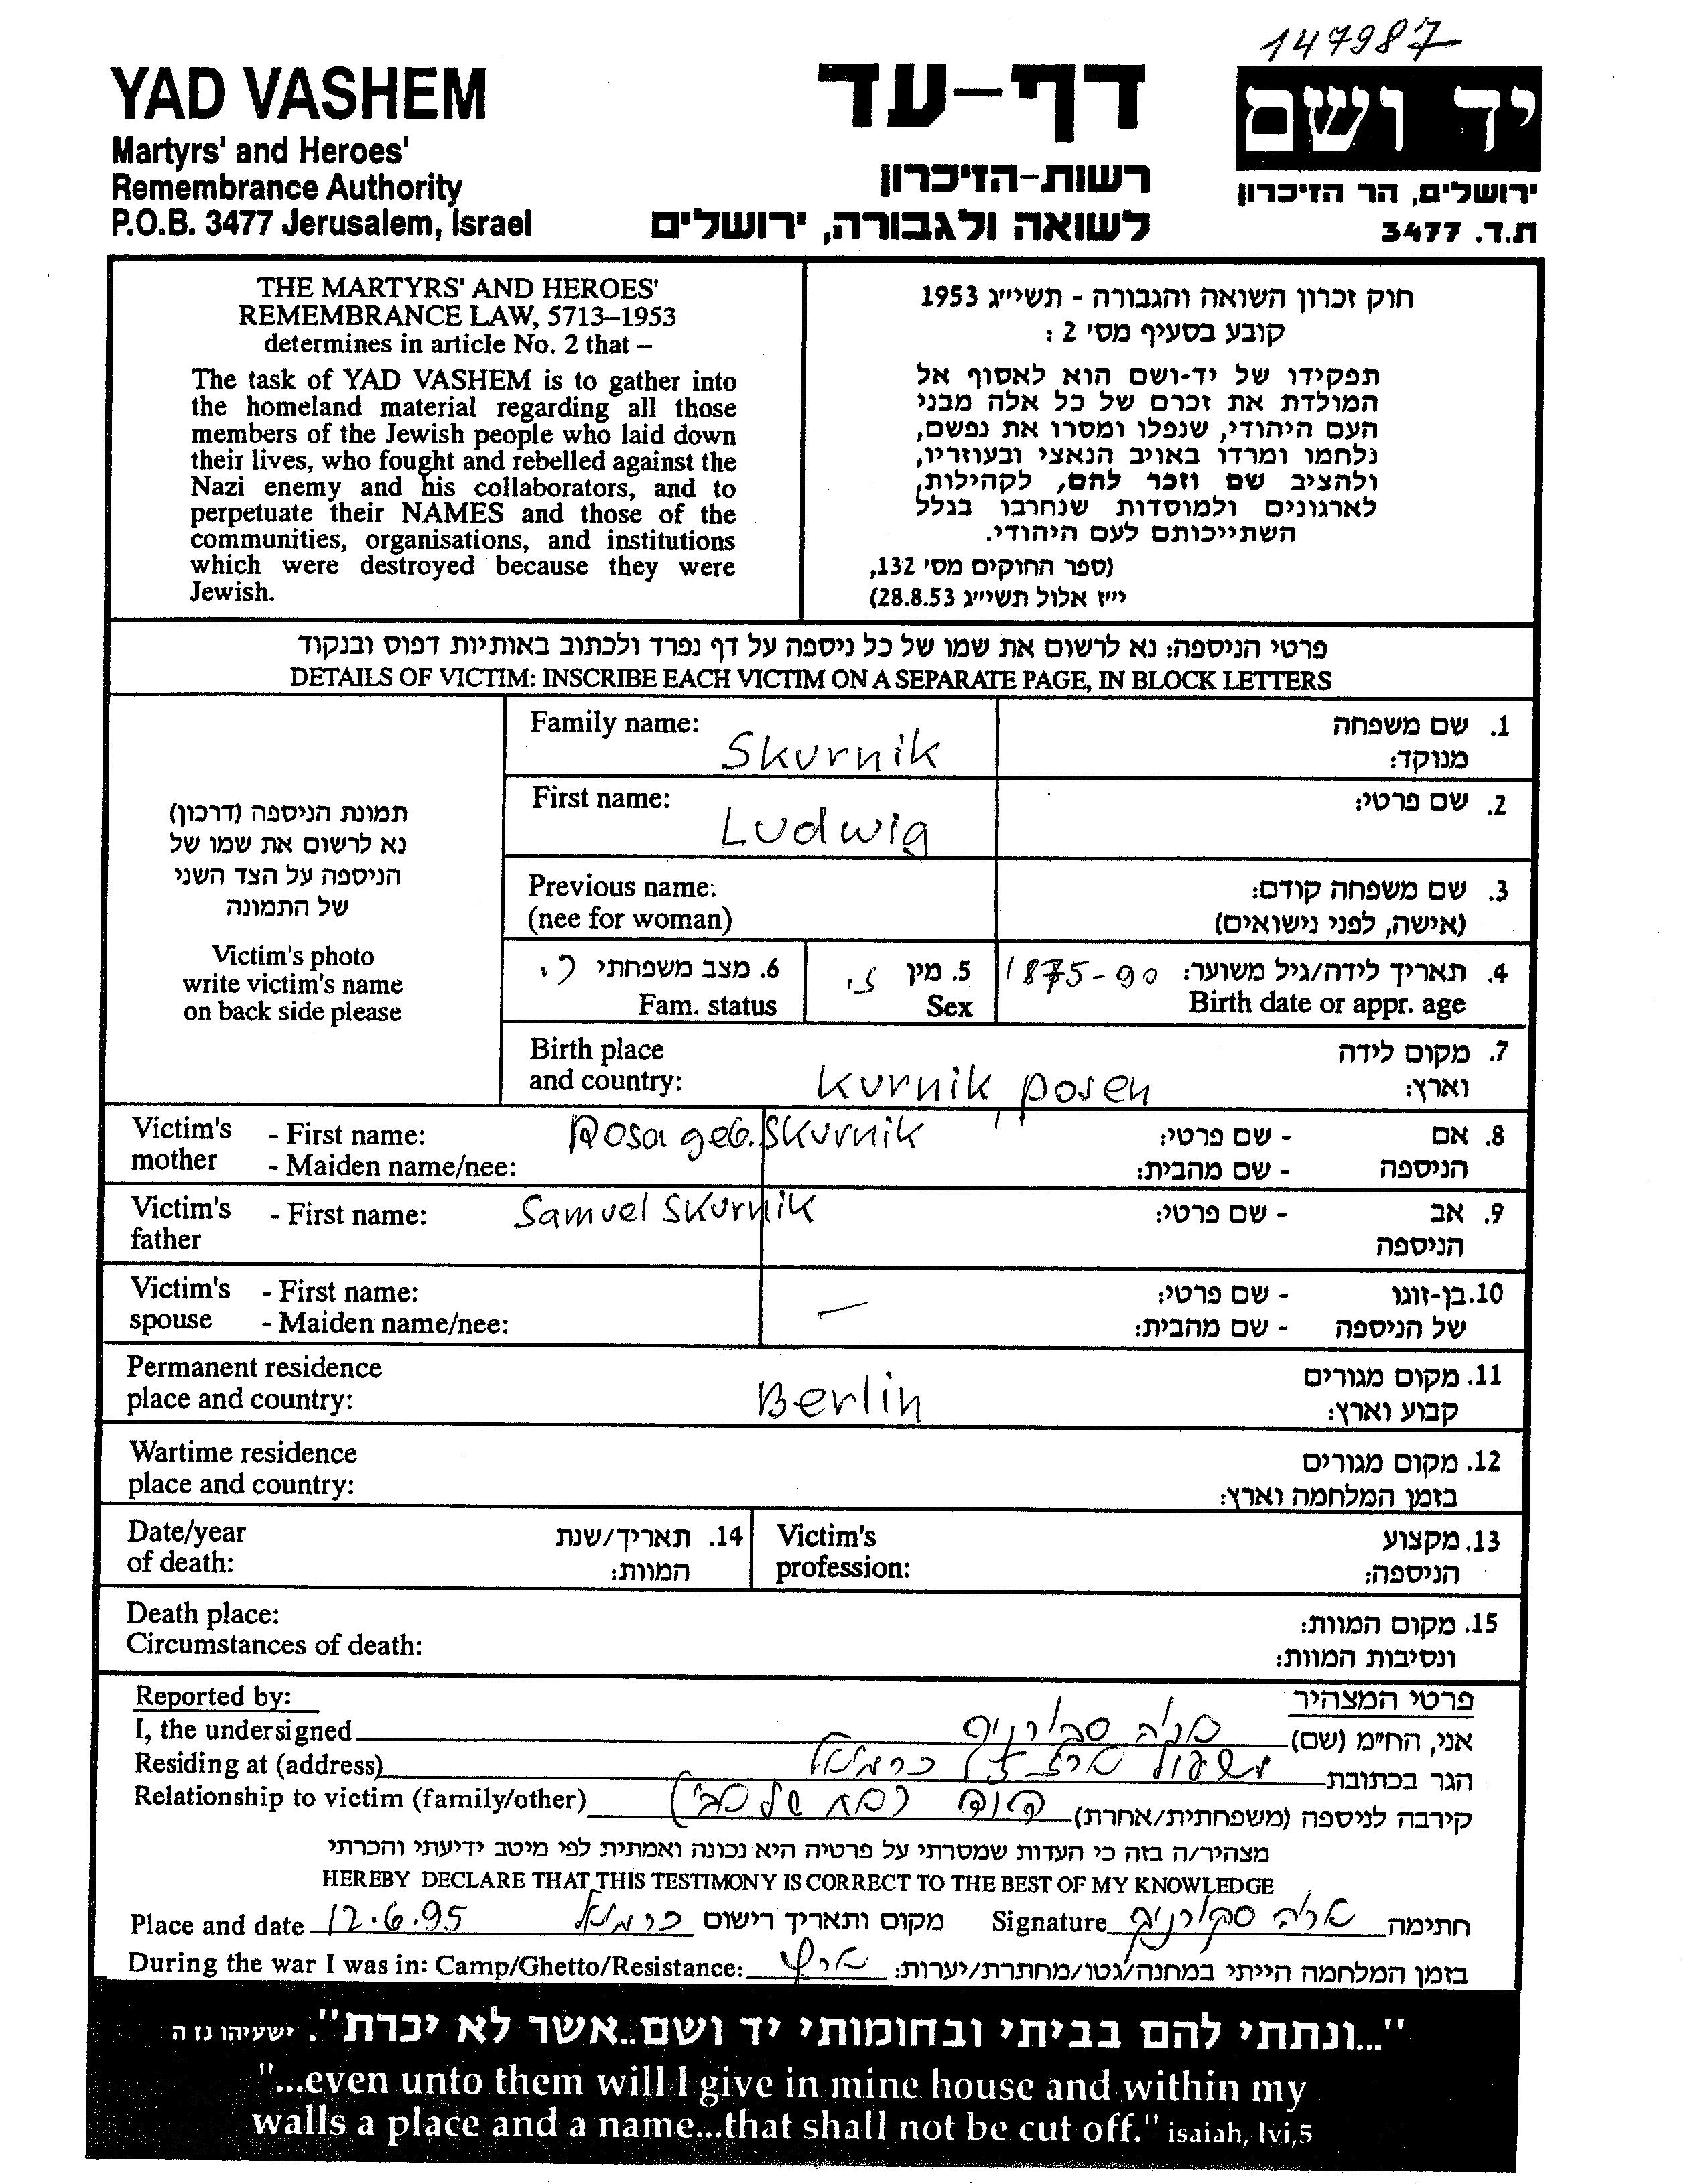 147987
YAD VASHEM
Martyrs' and Heroes'
Remembrance Authority
P.O.B. 3477 Jerusalem, Israel
דף-עד
רשות-הזיכרון
לשואה ולגבורה, ירושלים
יד ושם
ירושלים, הר הזיכרון
ת.ד. 3477
THE MARTYRS' AND HEROES'
REMEMBRANCE LAW, 5713–1953
determines in article No. 2 that –
The task of YAD VASHEM is to gather into
the homeland material regarding all those
members of the Jewish people who laid down
their lives, who fought and rebelled against the
Nazi enemy and his collaborators, and to
perpetuate their NAMES and those of the
communities, organisations, and institutions
which were destroyed because they were
Jewish.
חוק זכרון השואה והגבורה - תשי״ג 1953
קובע בסעיף מס׳ 2 :
תפקידו של יד-ושם הוא לאסוף אל
המולדת את זכרם של כל אלה מבני
העם היהודי, שנפלו ומסרו את נפשם,
נלחמו ומרדו באויב הנאצי ובעוזריו,
ולהציב שם וזכר להם, לקהילות,
לארגונים ולמוסדות שנחרבו בגלל
השתייכותם לעם היהודי.
(ספר החוקים מס׳ 132,
י״ז אלול תשי״ג 28.8.53)
פרטי הניספה: נא לרשום את שמו של כל ניספה על דף נפרד ולכתוב באותיות דפוס ובנקוד
DETAILS OF VICTIM: INSCRIBE EACH VICTIM ON A SEPARATE PAGE, IN BLOCK LETTERS
תמונת הניספה (דרכון)
נא לרשום את שמו של
הניספה על הצד השני
של התמונה
Victim's photo
write victim's name
on back side please
Family name: Skurnik 1. שם משפחה
מנוקד:
First name: Ludwig 2. שם פרטי:
Previous name: 3. שם משפחה קודם:
(nee for woman) (אישה, לפני נישואים)
4. תאריך לידה/גיל משוער: 1875-90
Birth date or appr. age
5. מין ז.
Sex
6. מצב משפחתי
Fam. status
Birth place 7. מקום לידה
and country: Kurnik, Posen וארץ:
Victim's - First name: Rosa geb. Skurnik - שם פרטי: 8. אם
mother - Maiden name/nee: - שם מהבית: הניספה
Victim's - First name: Samuel Skurnik - שם פרטי: 9. אב
father הניספה
Victim's - First name: - שם פרטי: 10. בן-זוגו
spouse - Maiden name/nee: — - שם מהבית: של הניספה
Permanent residence 11. מקום מגורים
place and country: Berlin קבוע וארץ:
Wartime residence 12. מקום מגורים
place and country: בזמן המלחמה וארץ:
Date/year 14. תאריך/שנת
of death: המוות:
Victim's 13. מקצוע
profession: הניספה:
Death place: 15. מקום המוות:
Circumstances of death: ונסיבות המוות:
Reported by: פרטי המצהיר
I, the undersigned אריה סקורניק אני, הח״מ (שם)
Residing at (address) משעול ארז כרמיאל הגר בכתובת
Relationship to victim (family/other) קירבה לניספה (משפחתית/אחרת) דוד
מצהיר/ה בזה כי העדות שמסרתי על פרטיה היא נכונה ואמתית לפי מיטב ידיעתי והכרתי
HEREBY DECLARE THAT THIS TESTIMONY IS CORRECT TO THE BEST OF MY KNOWLEDGE
Place and date 12.6.95 כרמיאל מקום ותאריך רישום Signature אריה סקורניק חתימה
During the war I was in: Camp/Ghetto/Resistance: ארץ בזמן המלחמה הייתי במחנה/גטו/מחתרת/יערות:
"...ונתתי להם בביתי ובחומותי יד ושם..אשר לא יכרת". ישעיהו נז ה
"...even unto them will I give in mine house and within my
walls a place and a name...that shall not be cut off." isaiah, lvi,5